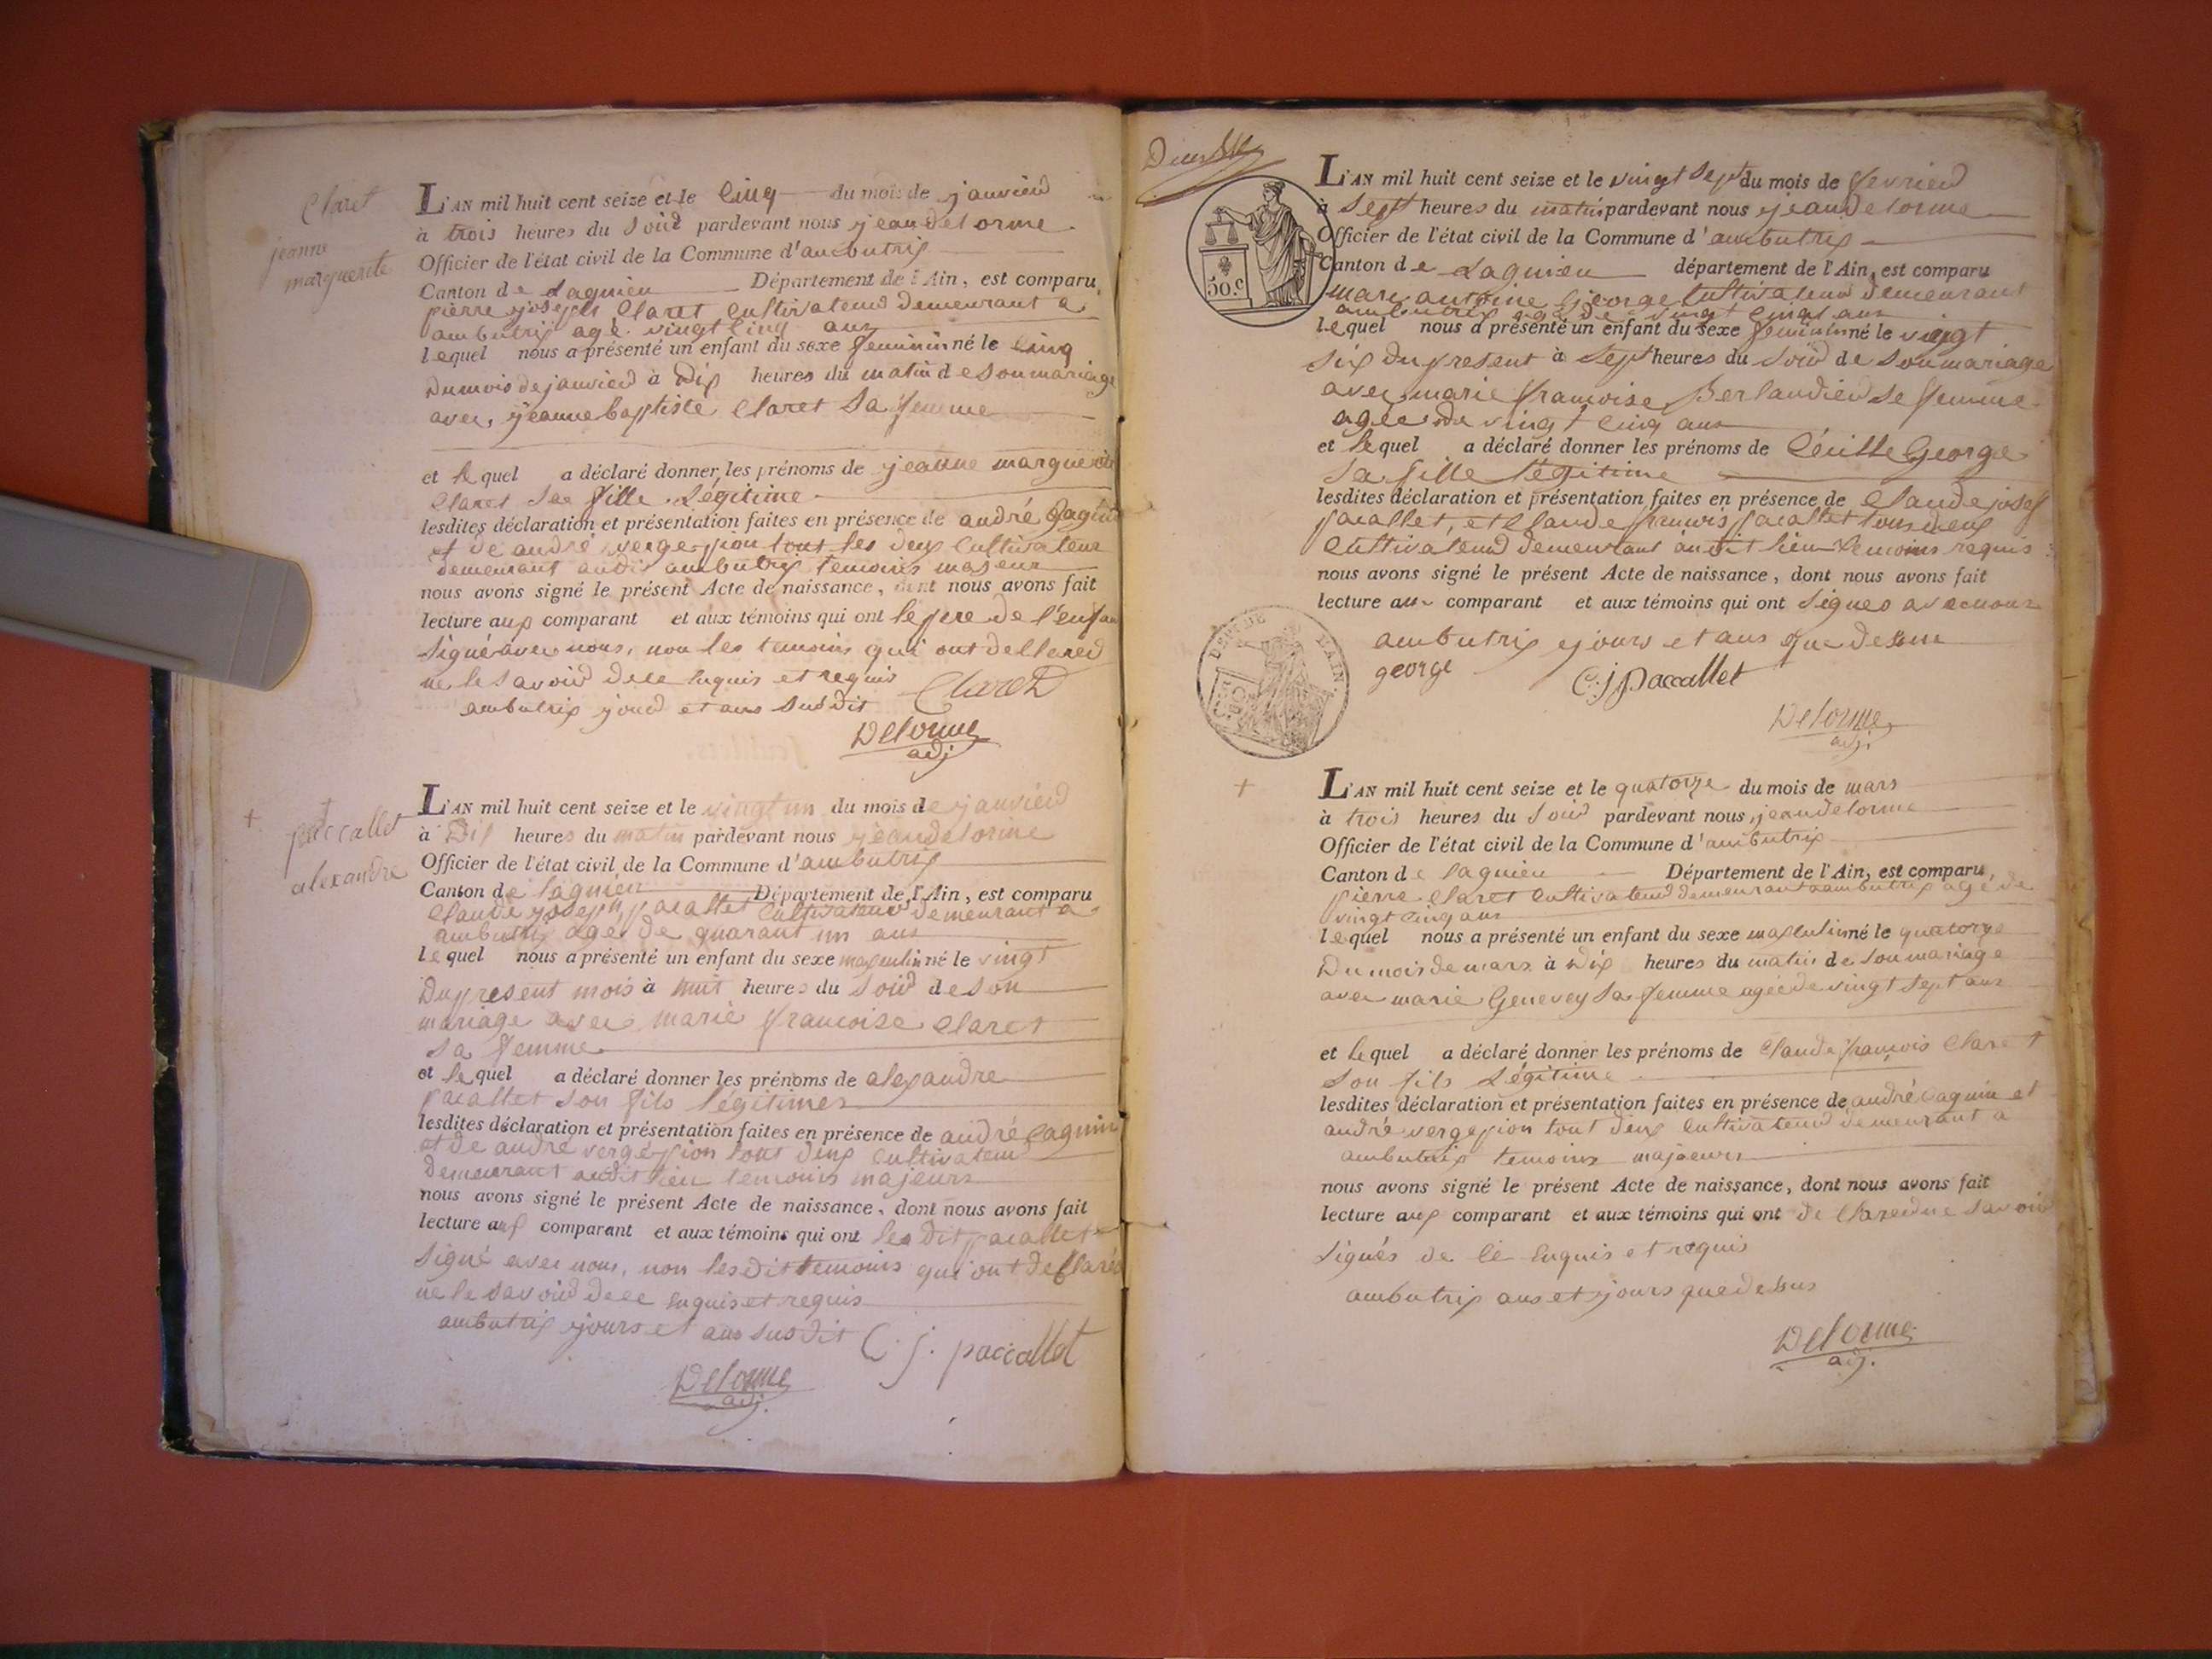 Claret
jeanne
marguerite
L'AN mil huit cent seize et le Cinq du mois de janvier
à trois heures du Soir pardevant nous jean delorme
Officier de l'état civil de la Commune d'ambutrix
Canton de Lagnieu Département de l'Ain, est comparu,
pierre joseph Claret Cultivateur demeurant a
ambutrix agé vingt Cinq ans
lequel nous a présenté un enfant du sexe feminin né le Cinq
Du mois de janvier à Dix heures du matin de son mariage
avec, jeanne baptiste Claret Sa femme
et lequel a déclaré donner les prénoms de jeanne marguerite
Claret Sa fille Légitime
lesdites déclaration et présentation faites en présence de andré
et de andré vergepion tout les deux Cultivateur
demeurant audit ambutrix temoins majeur
nous avons signé le présent Acte de naissance, dont nous avons fait
lecture aux comparant et aux témoins qui ont le pere de l'enfan
Signé avec nous, non les temoins qui ont
ne le Savoir de ce Enquis et requis Claret
ambutrix jour et ans Susdit
Delorme
adj
paccallet
alexandre
L'AN mil huit cent seize et le vingt un du mois de janvier
à Dix heures du matin pardevant nous jean delorme
Officier de l'état civil de la Commune d'ambutrix
Canton de lagnieu Département de l'Ain, est comparu
Claude joseph pacallet Cultivateur demeurant a
ambutrix age de quarant un ans
lequel nous a présenté un enfant du sexe masculin né le vingt
Du present mois à huit heures du Soir de Son
mariage avec marie francoise Claret
Sa femme
et lequel a déclaré donner les prénoms de alexandre
pacallet Son fils légitimes
lesdites déclaration et présentation faites en présence de andré Cagnin
et de andré vergepion tout deux Cultivateur
demeurant audit lieu temoins majeurs
nous avons signé le présent Acte de naissance, dont nous avons fait
lecture aux comparant et aux témoins qui ont le dit pacallet
Signé avec nous, non les dit temoins qui ont declaré
ne le Savoir de ce Enquis et requis
ambutrix jours et ans susdit C. j. paccallet
Delorme
adj.
Deux
50.c
L'AN mil huit cent seize et le vingt Sept du mois de fevrier
à Sept heures du matin pardevant nous jean delorme
Officier de l'état civil de la Commune d'ambutrix
Canton de Lagnieu département de l'Ain, est comparu
marc antoine George Cultivateur demeurant
ambutrix age de vingt Cinq ans
lequel nous a présenté un enfant du sexe feminin né le vingt
Six du present à Sept heures du Soir de Son mariage
avec marie francoise Berlandier Se femme
agée de vingt Cinq ans
et lequel a déclaré donner les prénoms de George
Sa fille légitime
lesdites déclaration et présentation faites en présence de Claude josef
pacallet, et Claude francois pacallet tous deux
Cultivateur demeurant au dit lieu temoins requis
nous avons signé le présent Acte de naissance, dont nous avons fait
lecture au comparant et aux témoins qui ont Signes avec nous
ambutrix jours et ans que dessus
george C. j paccallet
Delorme
adj.
DEPT DE L'AIN.
L'AN mil huit cent seize et le quatorze du mois de mars
à trois heures du Soir pardevant nous, jean delorme
Officier de l'état civil de la Commune d'ambutrix
Canton de lagnieu Département de l'Ain, est comparu,
pierre Claret Cultivateur demeurant a ambutrix age de
vingt Cinq ans
lequel nous a présenté un enfant du sexe masculin né le quatorze
Du mois de mars à Dix heures du matin de Son mariage
avec marie Genevey Sa femme agée de vingt Sept ans
et lequel a déclaré donner les prénoms de Claude francois Claret
Son fils Légitime
lesdites déclaration et présentation faites en présence de andré Cagnin et
andré vergepion tout deux Cultivateur demeurant a
ambutrix temoins majeurs
nous avons signé le présent Acte de naissance, dont nous avons fait
lecture aux comparant et aux témoins qui ont ne Savoir
Signés de ce Enquis et requis
ambutrix ans et jours que dessus
Delorme
adj.